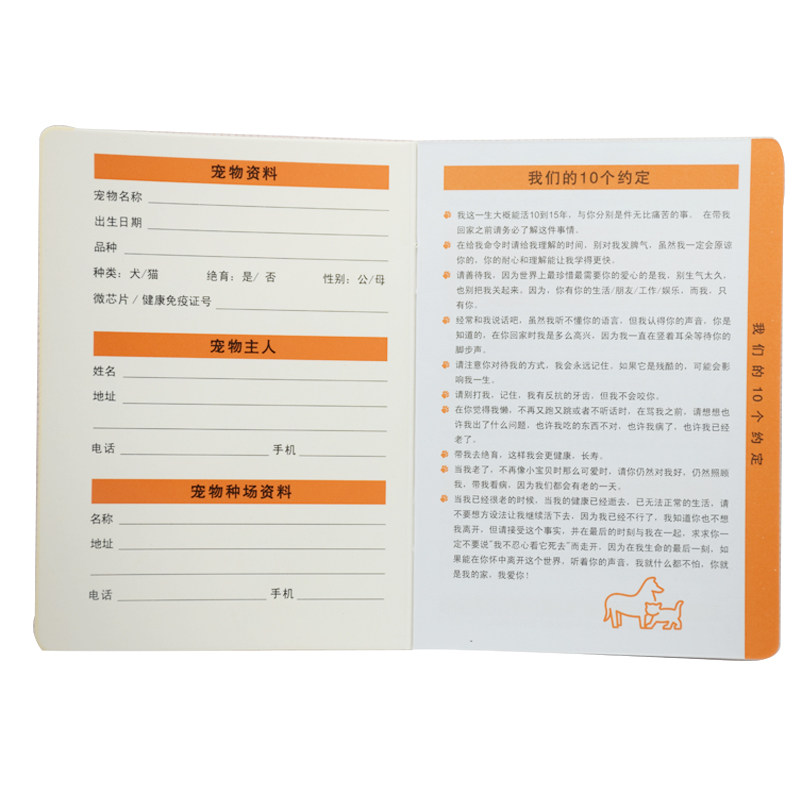 宠物资料
宠物名称
出生日期
品种
种类：犬/猫 绝育：是/ 否 性别：公/母
微芯片 / 健康免疫证号
宠物主人
姓名
地址
电话 手机
宠物种场资料
名称
地址
电话 手机
我们的10个约定
我这一生大概能活10到15年，与你分别是件无比痛苦的事， 在带我
回家之前请务必了解这件事情。
在给我命令时请给我理解的时间，别对我发脾气，虽然我一定会原谅
你的，你的耐心和理解能让我学得更快。
请善待我，因为世界上最珍惜最需要你的爱心的是我，别生气太久，
也别把我关起来，因为，你有你的生活/朋友/工作/娱乐，而我，只
有你。
经常和我说话吧，虽然我听不懂你的语言，但我认得你的声音，你是
知道的，在你回家时我是多么高兴，因为我一直在竖着耳朵等待你的
脚步声。
请注意你对待我的方式，我会永远记住，如果它是残酷的，可能会影
响我一生。
请别打我，记住，我有反抗的牙齿，但我不会咬你。
在你觉得我懒，不再又跑又跳或者不听话时，在骂我之前，请想想也
许我出了什么问题，也许我吃的东西不对，也许我病了，也许我已经
老了。
带我去绝育，这样我会更健康，长寿。
当我老了，不再像小宝贝时那么可爱时，请你仍然对我好，仍然照顾
我，带我看病，因为我们都会有老的一天。
当我已经很老的时候，当我的健康已经逝去，已无法正常的生活，请
不要想方设法让我继续活下去，因为我已经不行了，我知道你也不想
我离开，但请接受这个事实，并在最后的时刻与我在一起，求求你一
定不要说"我不忍心看它死去"而走开，因为在我生命的最后一刻，如
果能在你怀中离开这个世界，听着你的声音，我就什么都不怕，你就
是我的家，我爱你！
我们的10个约定